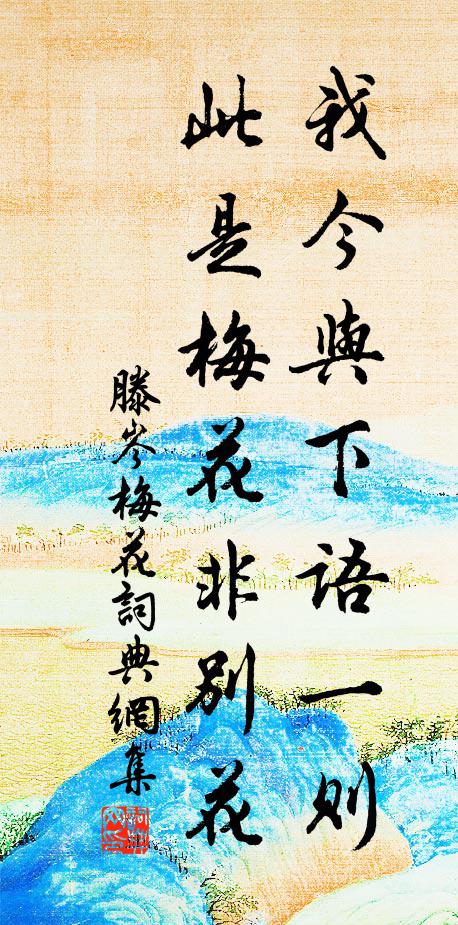 我今與下語一則
此是梅花非別花
滕岑梅花詞典網集